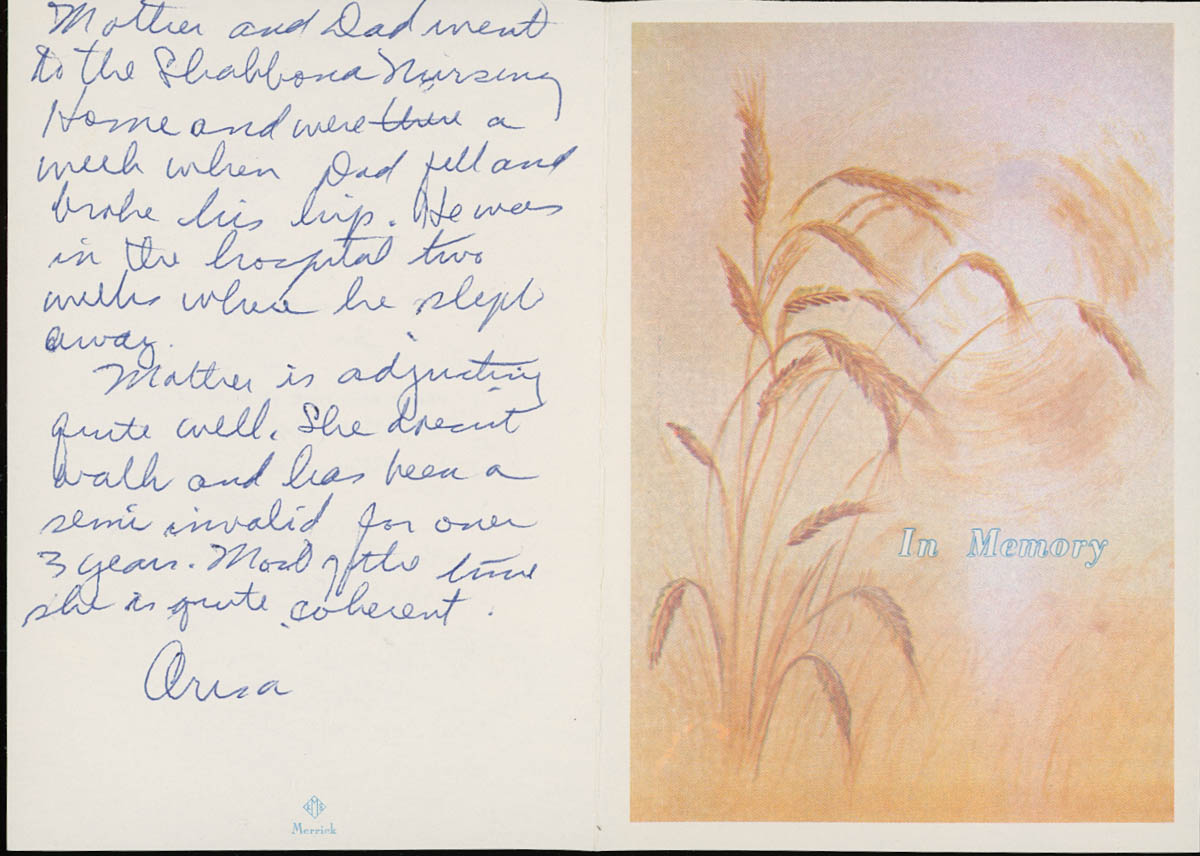 Mother and Dad went
to the Shabbona Nursing
Home and were there a
week when Dad fell and
broke his hip. He was
in the hospital two
weeks when he slept
away.
Mother is adjusting
quite well. She doesnt
walk and has been a
semi invalid for over
3 years. Most of the time
she is quite coherent.
Merrick
In Memory